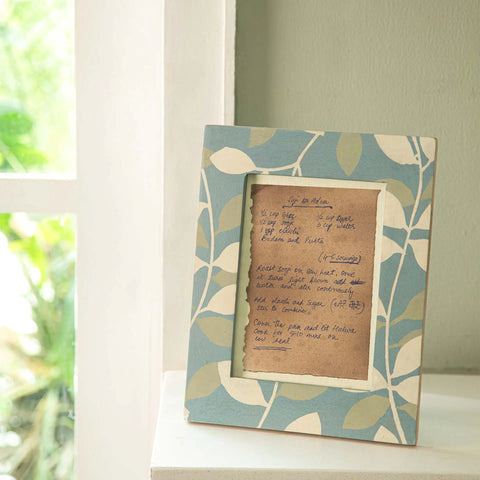 Suji ka Halwa
½ cup Ghee ½ cup Sugar
½ cup Sooji 2 cup water
1 tsp elaichi
Badam and Pista
(4-5 servings)
Roast Sooji on low heat, once
it turns light brown add
water and stir continuously
Add elaichi and Sugar
Stir to combine
Cover the pan and let
Cook for 5-10 mins on
low heat